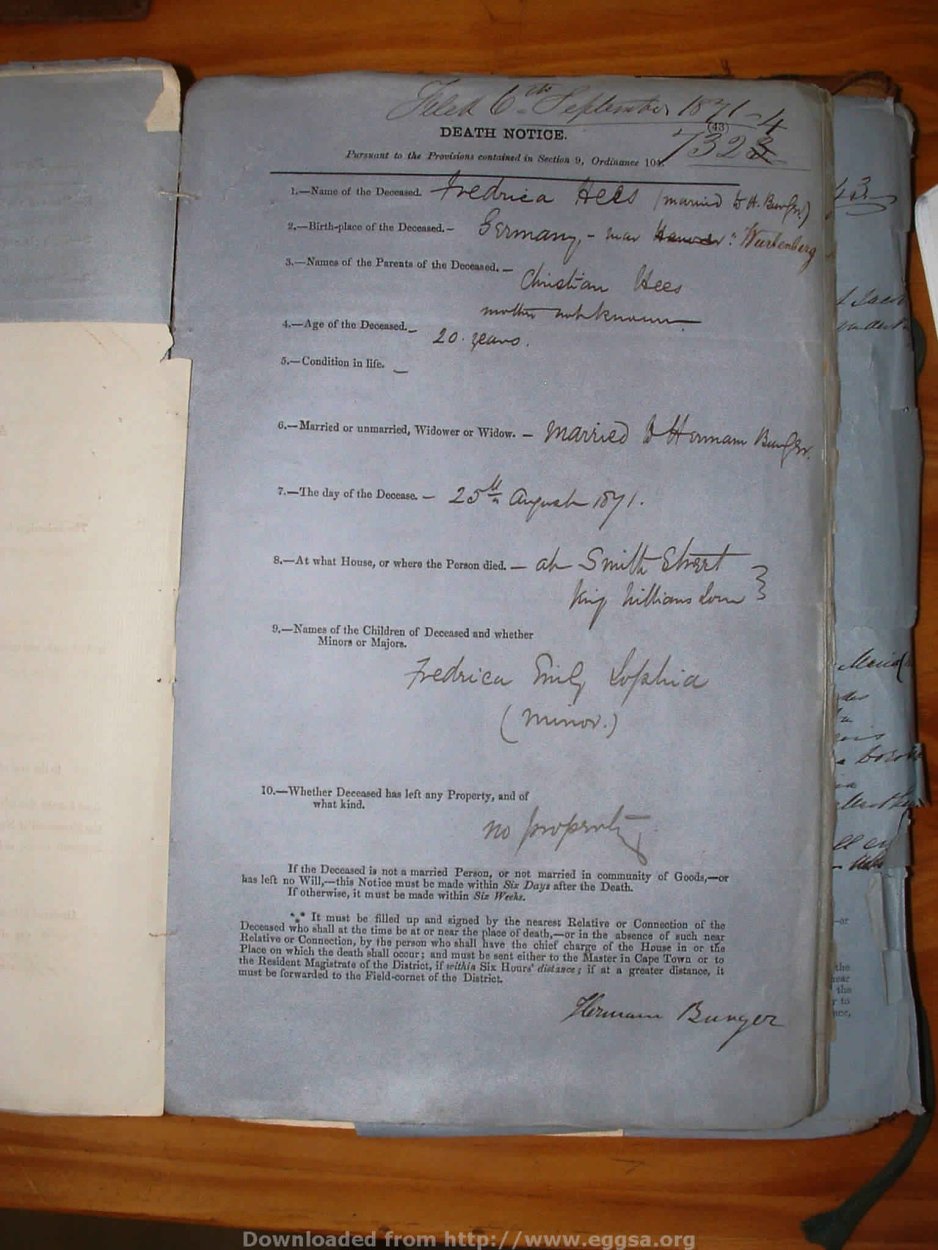 Filed 6th September 1871 - 4
(43)
DEATH NOTICE. 7323
Pursuant to the Provisions contained in Section 9, Ordinance 104.
1.—Name of the Deceased. Fredrica Hees (married to H. Bunger)
2.—Birth-place of the Deceased.- Germany, - near Hanover : Wurtenberg
3.—Names of the Parents of the Deceased. - Christian Hees
mother not known.
4.—Age of the Deceased. - 20 years.
5.—Condition in life. -
6.—Married or unmarried, Widower or Widow. - Married to Hermann Bunger.
7.—The day of the Decease. - 25th August 1871.
8.—At what House, or where the Person died. - at Smith Street
King Williams Town
9.—Names of the Children of Deceased and whether
Minors or Majors.
Fredrica Emily Sophia
(minor.)
10.—Whether Deceased has left any Property, and of
what kind.
no property
If the Deceased is not a married Person, or not married in community of Goods,—or
has left no Will,—this Notice must be made within Six Days after the Death.
If otherwise, it must be made within Six Weeks.
*⁎* It must be filled up and signed by the nearest Relative or Connection of the
Deceased who shall at the time be at or near the place of death,—or in the absence of such near
Relative or Connection, by the person who shall have the chief charge of the House in or the
Place on which the death shall occur; and must be sent either to the Master in Cape Town or to
the Resident Magistrate of the District, if within Six Hours' distance; if at a greater distance, it
must be forwarded to the Field-cornet of the District.
Hermann Bunger
Downloaded from http://www.eggsa.org